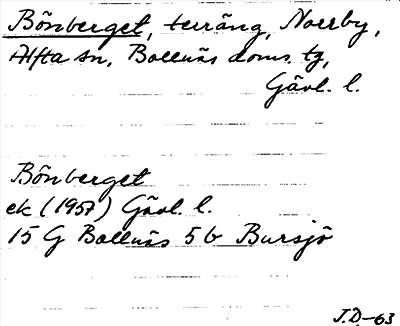 Bönberget, terräng, Norrby,
Alfta sn, Bollnäs doms. tg,
Gävl. l.
Bönberget
ek (1957) Gävl. l.
15 G Bollnäs 5 b Bursjö
J.D.-63